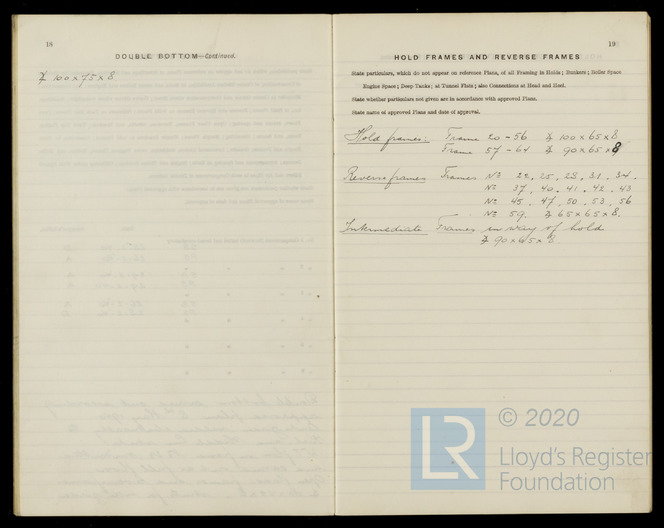 18
DOUBLE BOTTOM—Continued.
∠ 100 × 75 × 8
19
HOLD FRAMES AND REVERSE FRAMES
State particulars, which do not appear on reference Plans, of all Framing in Holds; Bunkers; Boiler Space
Engine Space; Deep Tanks; at Tunnel Flats; also Connections at Head and Heel.
State whether particulars not given are in accordance with approved Plans.
State name of approved Plans and date of approval.
Hold frames: Frame 20 - 56 ∠ 100 × 65 × 8
Frame 57 - 64 ∠ 90 × 65 × 8
Reverse frames Frames Nº 22, 25, 28, 31, 34.
Nº 37, 40, 41, 42, 43
Nº 45, 47, 50, 53, 56
Nº 59. ∠ 65 × 65 × 8.
Intermediate Frames in way of hold
∠ 90 × 65 × 8
LR
© 2020
Lloyd's Register
Foundation